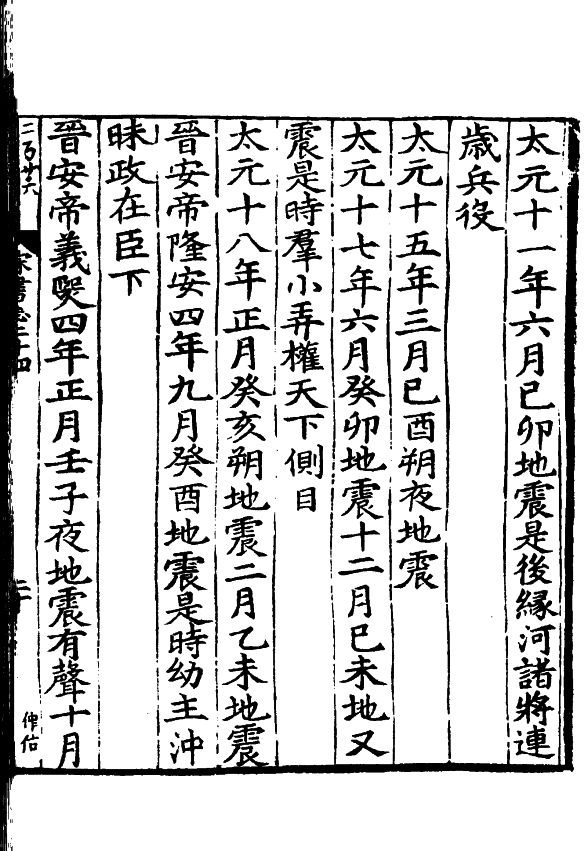 太元十一年六月己卯地震是後縁河諸將連
歳兵役
太元十五年三月己酉朔夜地震
太元十七年六月癸卯地震十二月己未地又
震是時羣小弄權天下側目
太元十八年正月癸亥朔地震二月乙未地震
晉安帝隆安四年九月癸酉地震是時幼主沖
昧政在臣下
晉安帝義熙四年正月壬子夜地震有聲十月
二百廿六
宋書志二十四